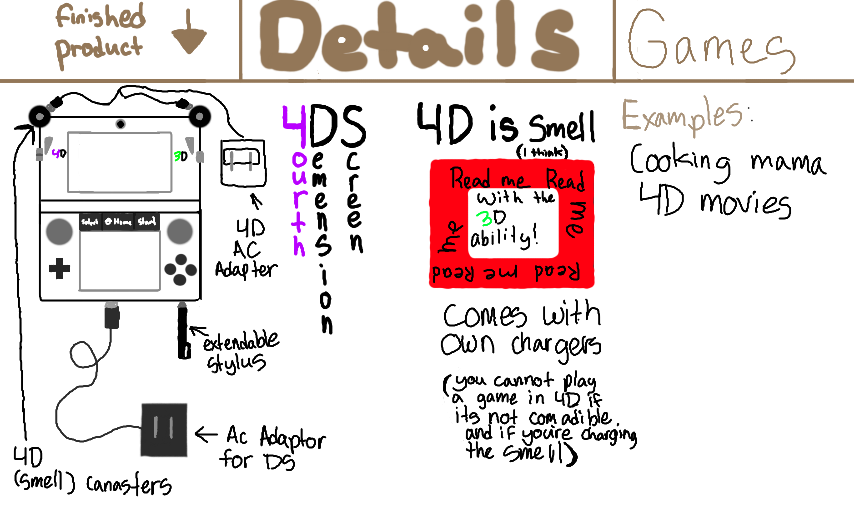 Finished
product
Details
Games
4D
3D
Select Home Start
4D
AC
Adapter
extendable
stylus
Ac Adaptor
for DS
4D
(smell) canasters
4DS
ourth
emension
creen
4D is smell
(I think)
Read me Read
me
Read me Read
me
with the
3D
ability!
Comes with
own chargers
(you cannot play
a game in 4D if
its not comadible.
and if you're charging
the smell)
Examples:
Cooking mama
4D movies